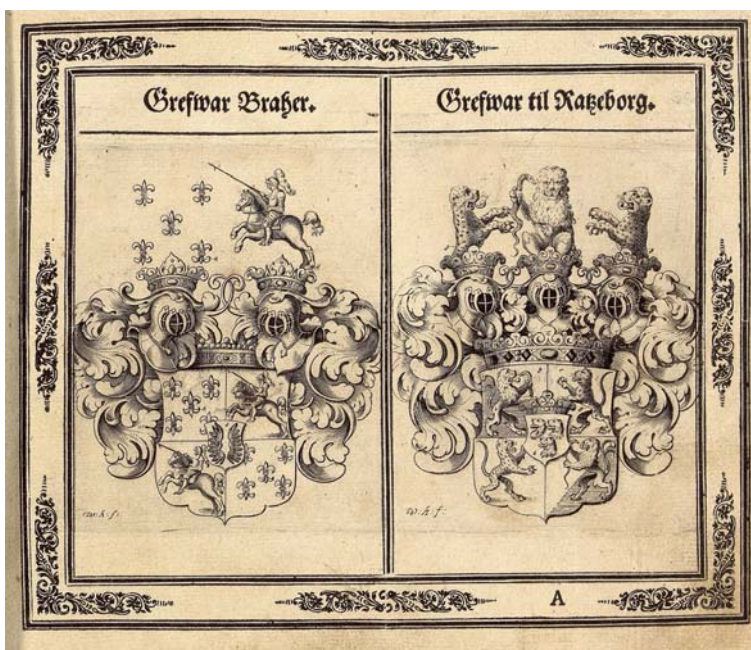 Grefwar Braher.
Grefwar til Ratzeborg.
w. h. f:
w. h. f:
A